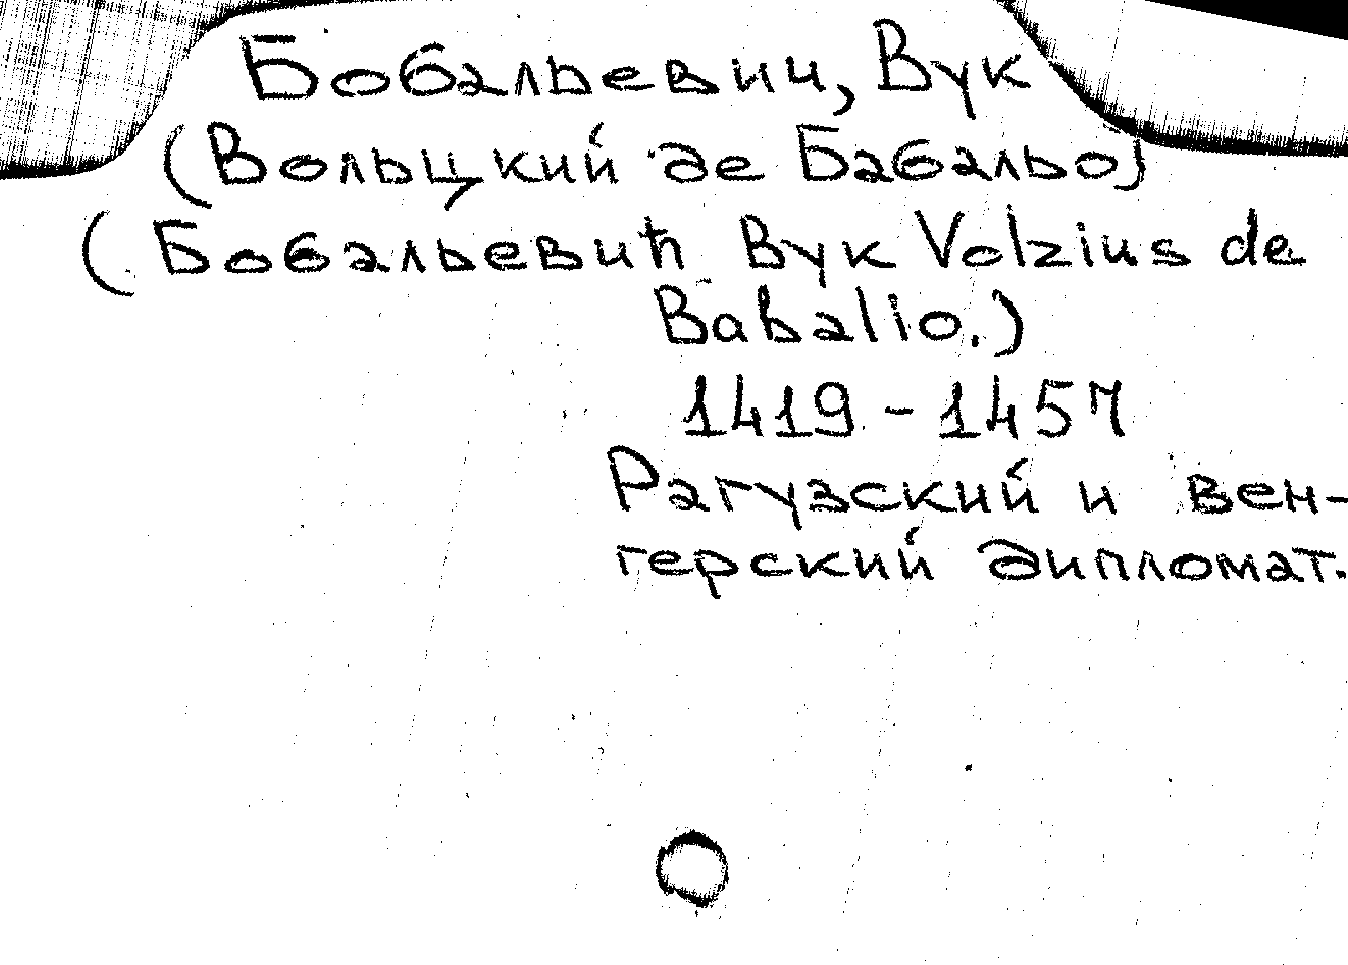 Бобальевич, Вук
(Вольцкий де Бабальо)
(Бобальевић Вук Volzius de
Babalio.)
1419-1457
Рагузский и вен-
герский дипломат.